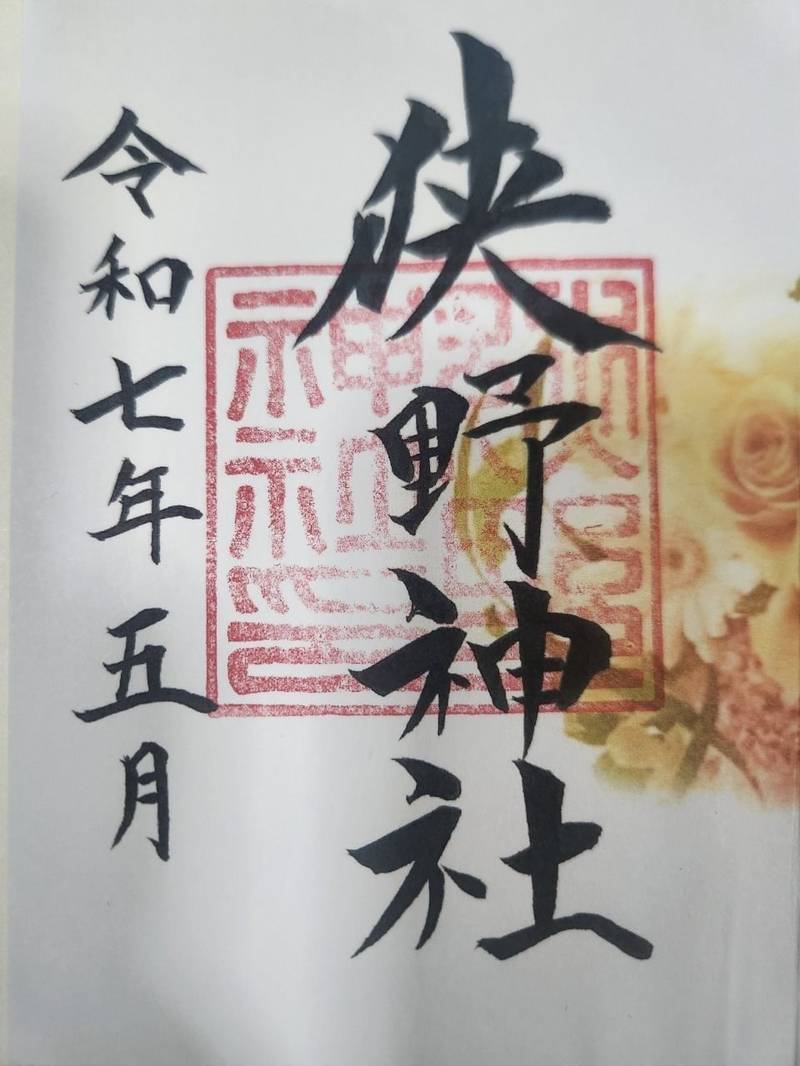 狭野神社
令和七年五月